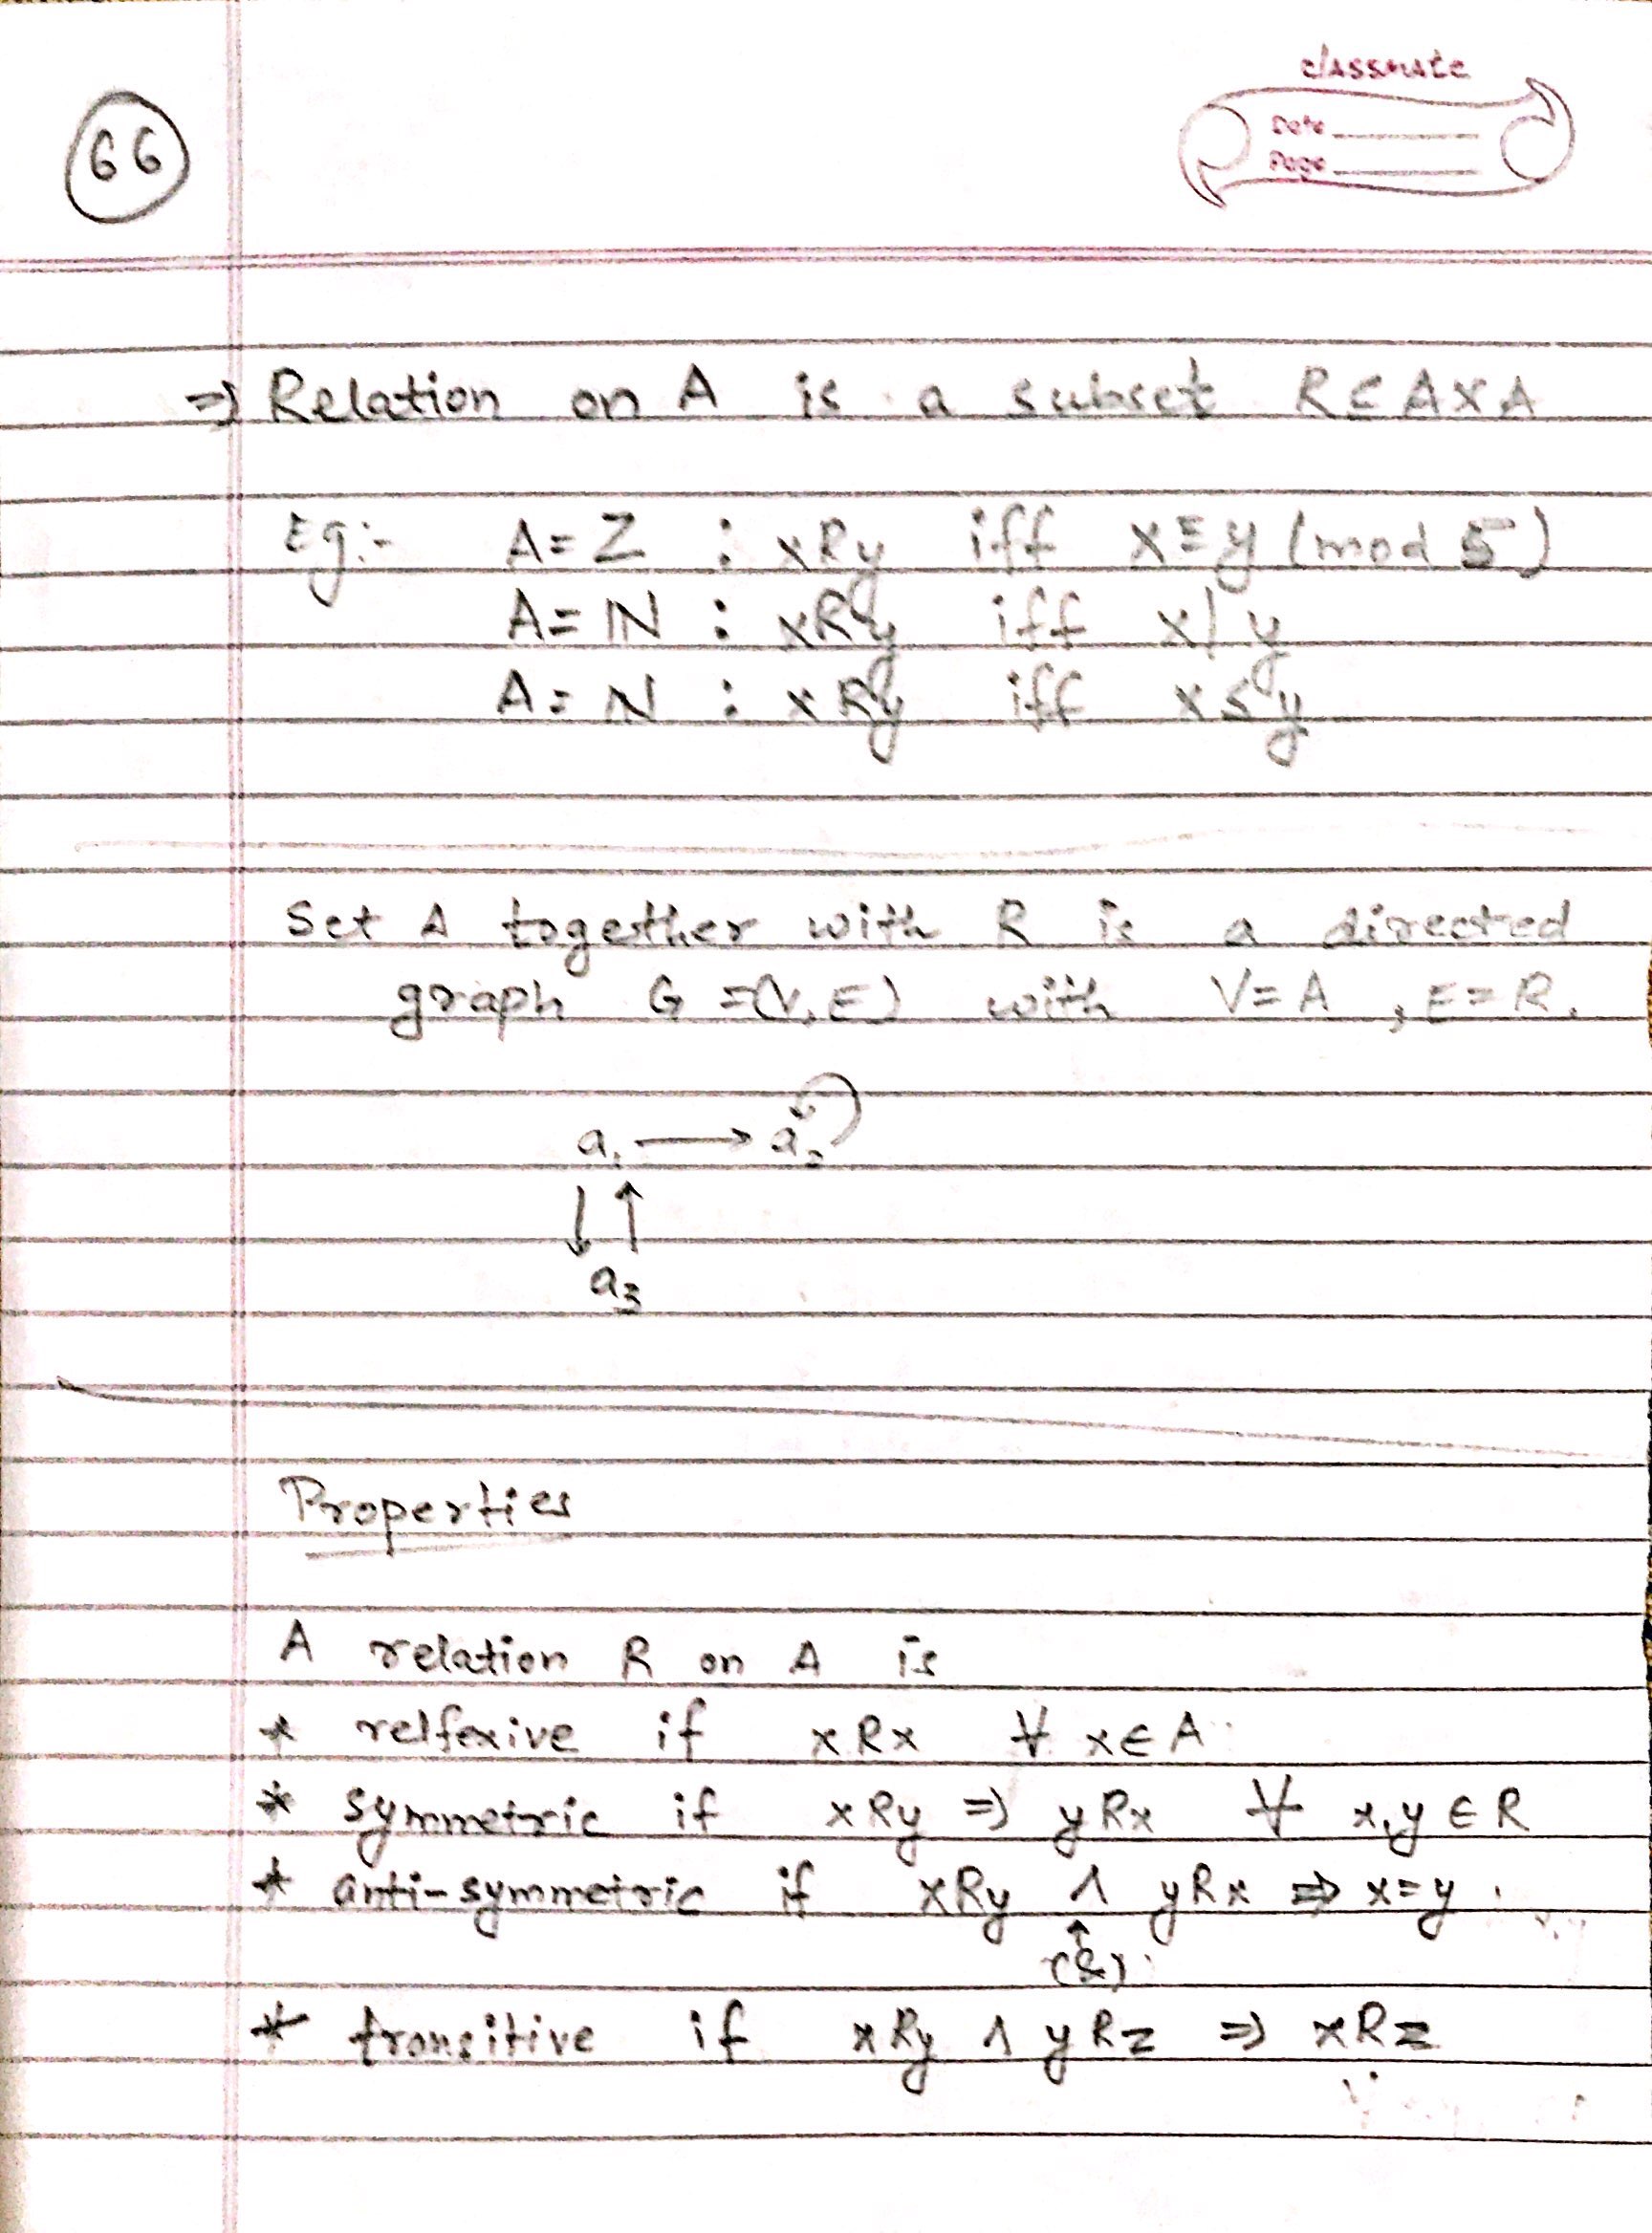 classmate
Date
Page
66
⇒ Relation on A is a subset R ⊂ A×A
Eg:- A = Z : xRy iff x ≡ y (mod 5)
A = IN : xRy iff x|y
A = N : xRy iff x ≤ y
Set A together with R is a directed
graph G = (V, E) with V = A , E = R.
a₁ → a₂
↓↑
a₃
Properties
A relation R on A is
* relfexive if xRx ∀ x ∈ A
* symmetric if xRy ⇒ yRx ∀ x,y ∈ R
* anti-symmetric if xRy ∧ yRx ⇒ x=y.
↑
(&)
* transitive if xRy ∧ yRz ⇒ xRz